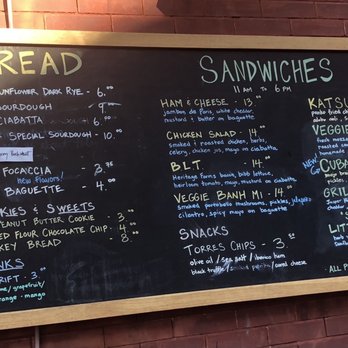 READ
SUNFLOWER DARK RYE - 6.00
SOURDOUGH - 9.00
CIABATTA - 6.00
SPECIAL SOURDOUGH - 10.00
FOCACCIA 3.75
new flavors!
BAGUETTE - 4.00
KIES & SWEETS
PEANUT BUTTER COOKIE - 3.
ED FLOUR CHOCOLATE CHIP - 4.
KEY BREAD - 8.
NKS
RIFT - 3.00
me/grapefruit/
orange - mango
SANDWICHES
11 AM to 6 PM
HAM & CHEESE - 13.
jambon de Paris, white cheddar,
mustard & butter on baguette
CHICKEN SALAD - 14.00
smoked & roasted chicken, herbs,
celery, chicken jus, mayo on ciabatta
BLT - 14.00
Heritage Farms bacon, bibb lettuce,
heirloom tomato, mayo, mustard on ciabatta
VEGGIE BANH MI - 14.00
smoked portobello mushrooms, pickles, jalapeño
cilantro, spicy mayo on baguette
SNACKS
TORRES CHIPS - 3.50
olive oil / sea salt / iberico ham
black truffle / smoked paprika / cured cheese
KATS
panko fried
VEGGIE
NEW
CUBA
GRIL
LIT
ALL P